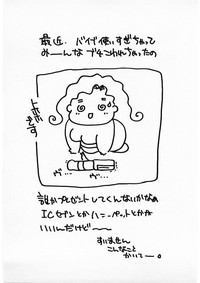 最近、バイブ使いすぎちゃって
みーんな ブチこわれちゃったの
トホホ
です
ヴ… ヴ…
誰かプレゼントしてくんないかなぁ
ICセブンとかハニーペットとかが
いいんだけど〜〜
すいません
こんなこと
かいてー。